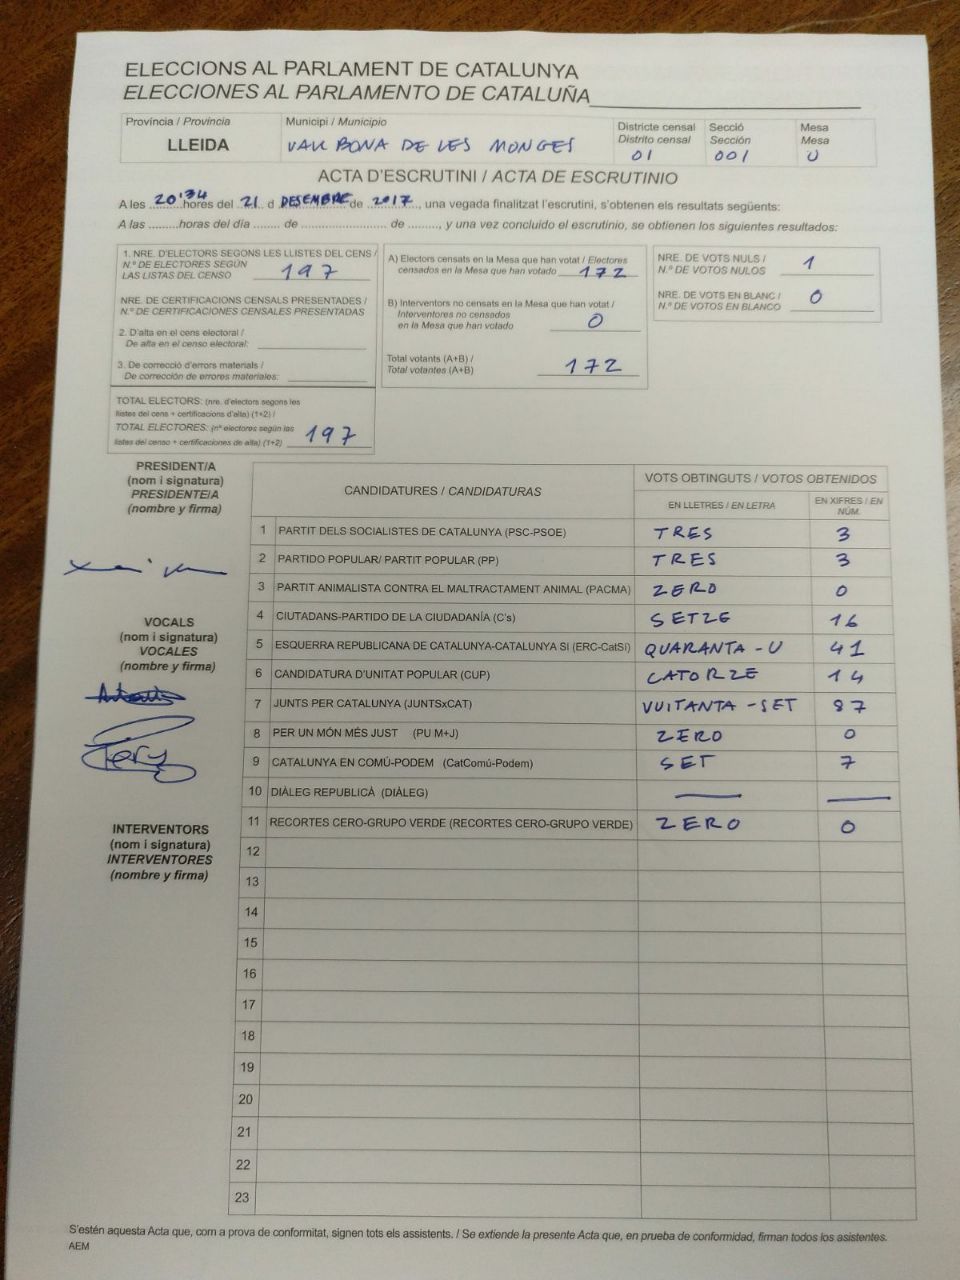 ELECCIONS AL PARLAMENT DE CATALUNYA
ELECCIONES AL PARLAMENTO DE CATALUÑA
Província / Provincia
LLEIDA
Municipi / Municipio
VALLBONA DE LES MONGES
Districte censal
Distrito censal
01
Secció
Sección
001
Mesa
Mesa
U
ACTA D'ESCRUTINI / ACTA DE ESCRUTINIO
A les 20'34 hores del 21 d DESEMBRE de 2017, una vegada finalitzat l'escrutini, s'obtenen els resultats següents:
A las .........horas del día ....... de ....................... de ........, y una vez concluido el escrutinio, se obtienen los siguientes resultados:
1. NRE. D'ELECTORS SEGONS LES LLISTES DEL CENS /
N.º DE ELECTORES SEGÚN
LAS LISTAS DEL CENSO 197
NRE. DE CERTIFICACIONS CENSALS PRESENTADES /
N.º DE CERTIFICACIONES CENSALES PRESENTADAS
2. D'alta en el cens electoral /
De alta en el censo electoral:
3. De correcció d'errors materials /
De corrección de errores materiales:
TOTAL ELECTORS: (nre. d'electors segons les
llistes del cens + certificacions d'alta) (1+2) /
TOTAL ELECTORES: (nº electores según las
listas del censo + certificaciones de alta) (1+2) 197
A) Electors censats en la Mesa que han votat / Electores
censados en la Mesa que han votado 172
B) Interventors no censats en la Mesa que han votat /
Interventores no censados
en la Mesa que han votado 0
Total votants (A+B) /
Total votantes (A+B) 172
NRE. DE VOTS NULS /
N.º DE VOTOS NULOS 1
NRE. DE VOTS EN BLANC /
N.º DE VOTOS EN BLANCO 0
PRESIDENT/A
(nom i signatura)
PRESIDENTE/A
(nombre y firma)
VOCALS
(nom i signatura)
VOCALES
(nombre y firma)
INTERVENTORS
(nom i signatura)
INTERVENTORES
(nombre y firma)
CANDIDATURES / CANDIDATURAS
VOTS OBTINGUTS / VOTOS OBTENIDOS
EN LLETRES / EN LETRA
EN XIFRES / EN
NÚM.
1 PARTIT DELS SOCIALISTES DE CATALUNYA (PSC-PSOE) TRES 3
2 PARTIDO POPULAR/ PARTIT POPULAR (PP) TRES 3
3 PARTIT ANIMALISTA CONTRA EL MALTRACTAMENT ANIMAL (PACMA) ZERO 0
4 CIUTADANS-PARTIDO DE LA CIUDADANÍA (C's) SETZE 16
5 ESQUERRA REPUBLICANA DE CATALUNYA-CATALUNYA SÍ (ERC-CatSí) QUARANTA-U 41
6 CANDIDATURA D'UNITAT POPULAR (CUP) CATORZE 14
7 JUNTS PER CATALUNYA (JUNTSxCAT) VUITANTA-SET 87
8 PER UN MÓN MÉS JUST (PU M+J) ZERO 0
9 CATALUNYA EN COMÚ-PODEM (CatComú-Podem) SET 7
10 DIÀLEG REPUBLICÀ (DIÀLEG)
11 RECORTES CERO-GRUPO VERDE (RECORTES CERO-GRUPO VERDE) ZERO 0
12
13
14
15
16
17
18
19
20
21
22
23
S'estén aquesta Acta que, com a prova de conformitat, signen tots els assistents. / Se extiende la presente Acta que, en prueba de conformidad, firman todos los asistentes.
AEM